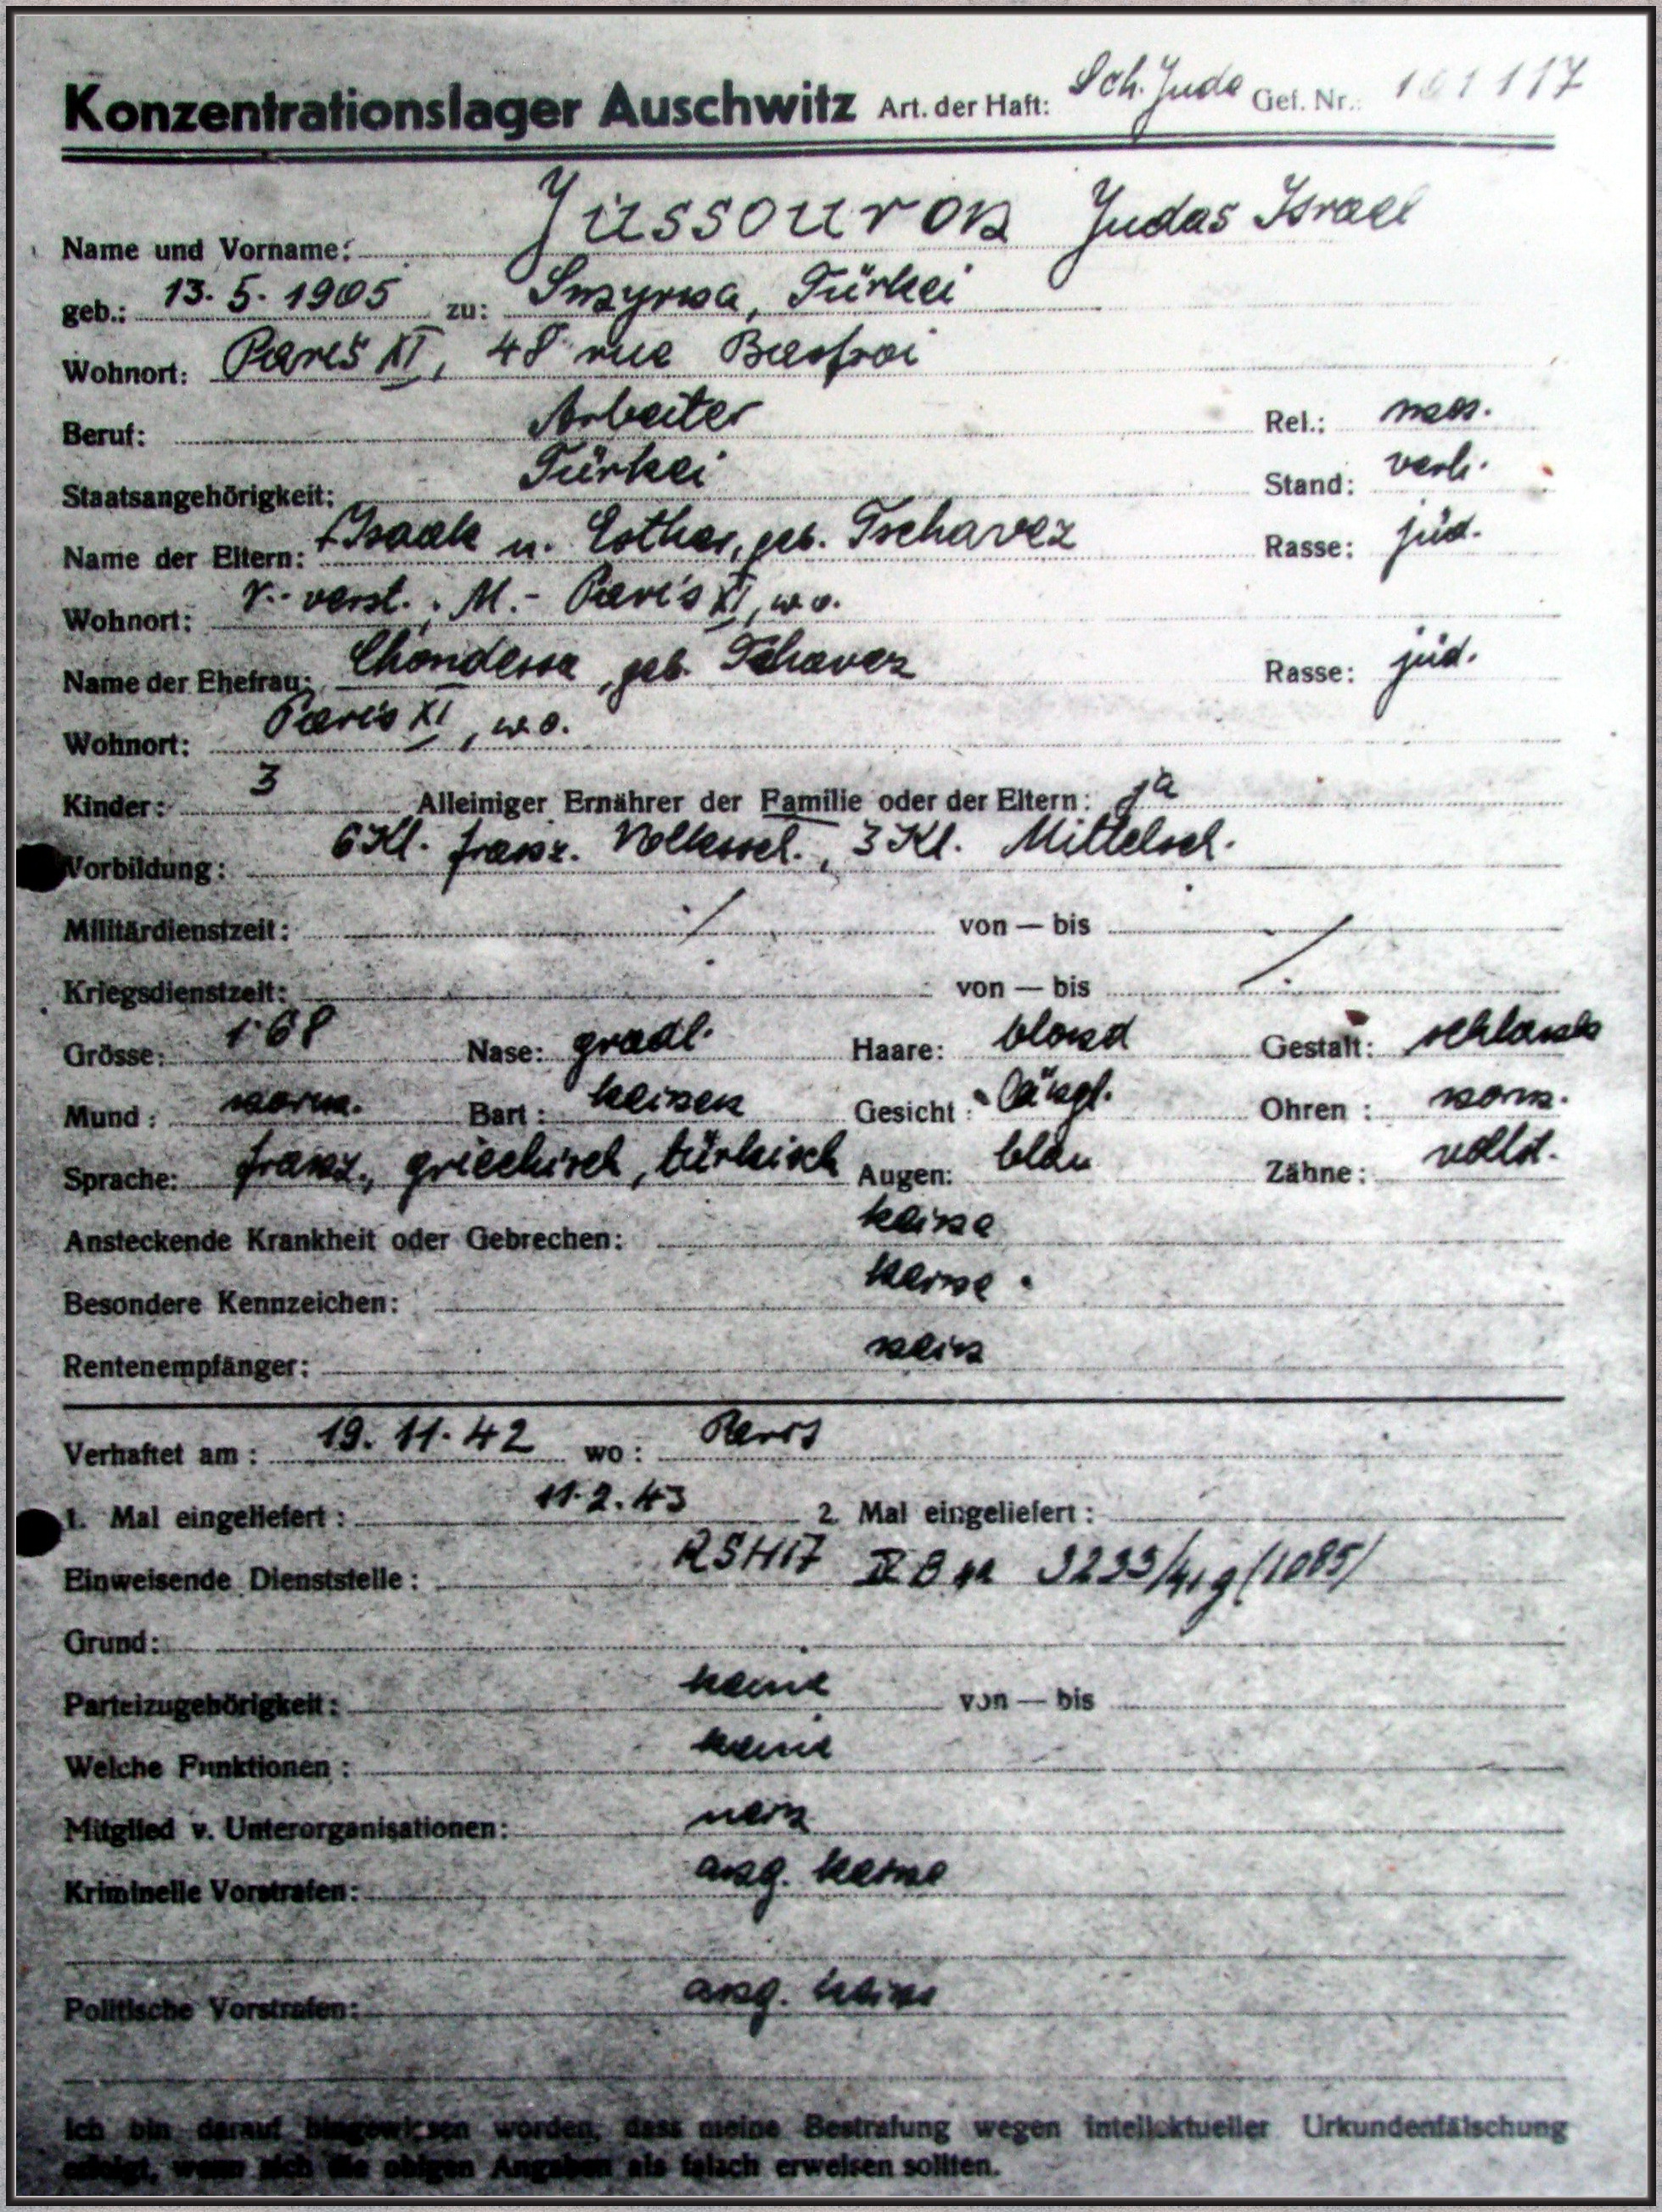 Konzentrationslager Auschwitz Art. der Haft: Sch. Jude Gef. Nr.: 101117
Name und Vorname: Jussouron Judas Israel
geb.: 13. 5. 1905 zu: Smyrna, Türkei
Wohnort: Paris XI, 48 rue Basfroi
Beruf: Arbeiter Rel.: mos.
Staatsangehörigkeit: Türkei Stand: verh.
Name der Eltern: +Isaak u. Esther, geb. Tschavez Rasse: jüd.
Wohnort: V.- verst., M.- Paris XI, w.o.
Name der Ehefrau: geb. Tchavez Rasse: jüd.
Wohnort: Paris XI, w.o.
Kinder: 3 Alleiniger Ernährer der Familie oder der Eltern: ja
Vorbildung: 6 Kl. franz. Volkssch., 3 Kl. Mittelsch.
Militärdienstzeit: / von — bis
Kriegsdienstzeit: von — bis /
Grösse: 168 Nase: gradl. Haare: blond Gestalt: schlank
Mund: norm. Bart: keinen Gesicht: längl. Ohren: norm.
Sprache: franz., griechisch, türkisch Augen: blau Zähne: vollst.
Ansteckende Krankheit oder Gebrechen: keine
Besondere Kennzeichen: keine
Rentenempfänger: nein
Verhaftet am: 19. 11. 42 wo: Paris
1. Mal eingeliefert: 11. 2. 43 2. Mal eingeliefert:
Einweisende Dienststelle: RSHA IV B 4a 3233/41g (1085)
Grund:
Parteizugehörigkeit: keine von — bis
Welche Funktionen: keine
Mitglied v. Unterorganisationen: nein
Kriminelle Vorstrafen: ang. keine
Politische Vorstrafen: ang. keine
Ich bin darauf hingewiesen worden, dass meine Bestrafung wegen intellektueller Urkundenfälschung
erfolgt, wenn sich die obigen Angaben als falsch erweisen sollten.